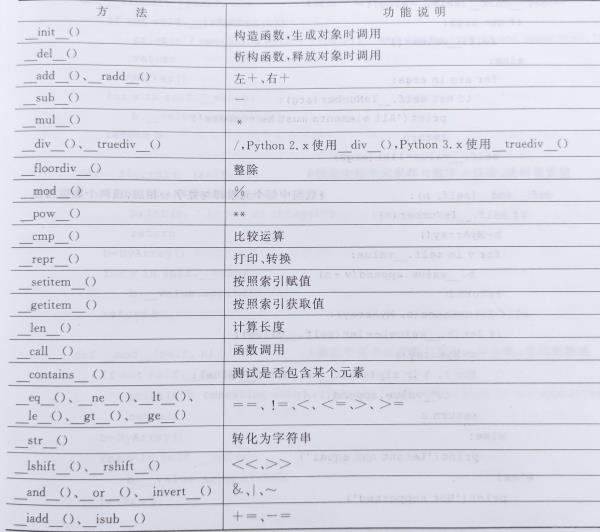 方 法 功 能 说 明
__init__() 构造函数,生成对象时调用
__del__() 析构函数,释放对象时调用
__add__()、__radd__() 左+、右+
__sub__() -
__mul__() *
__div__()、__truediv__() /,Python 2.x 使用__div__(),Python 3.x 使用__truediv__()
__floordiv__() 整除
__mod__() %
__pow__() **
__cmp__() 比较运算
__repr__() 打印、转换
__setitem__() 按照索引赋值
__getitem__() 按照索引获取值
__len__() 计算长度
__call__() 函数调用
__contains__() 测试是否包含某个元素
__eq__()、__ne__()、__lt__()、
__le__()、__gt__()、__ge__() ==、!=、<、<=、>、>=
__str__() 转化为字符串
__lshift__()、__rshift__() <<、>>
__and__()、__or__()、__invert__() &、|、~
__iadd__()、__isub__() +=、-=